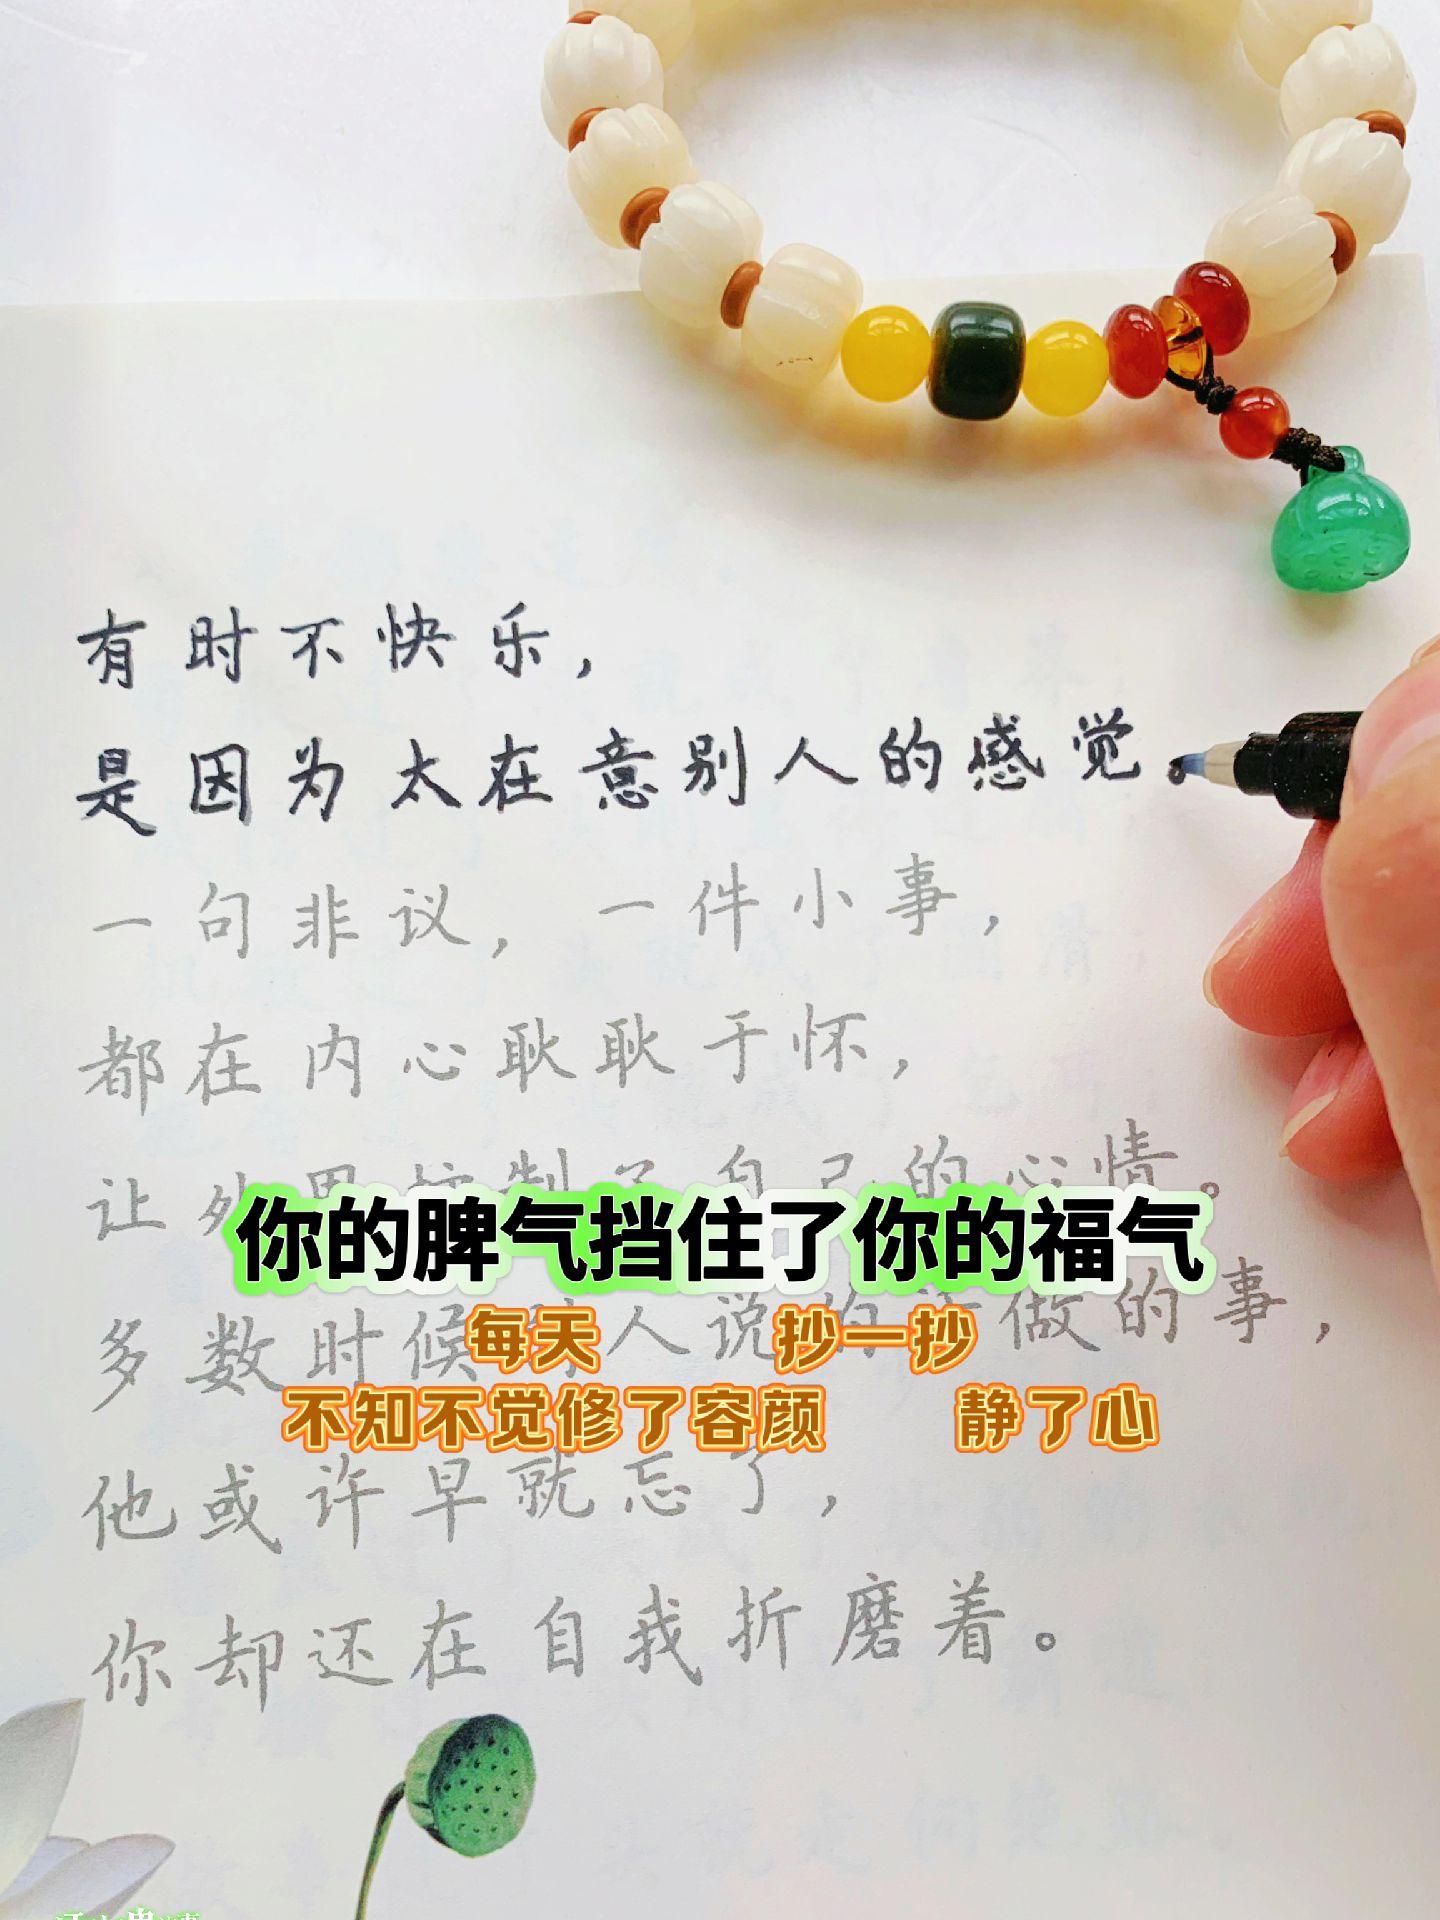 有时不快乐，
是因为太在意别人的感觉。
一句非议，一件小事，
都在内心耿耿于怀，
让外界控制了自己的心情。
你的脾气挡住了你的福气
多数时候别人说的话做的事，
每天 抄一抄
不知不觉修了容颜 静了心
他或许早就忘了，
你却还在自我折磨着。